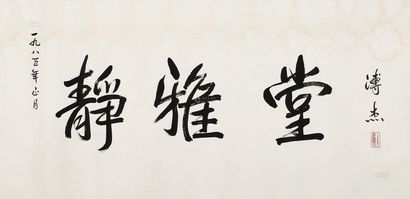 一九八五年正月
靜雅堂
溥杰